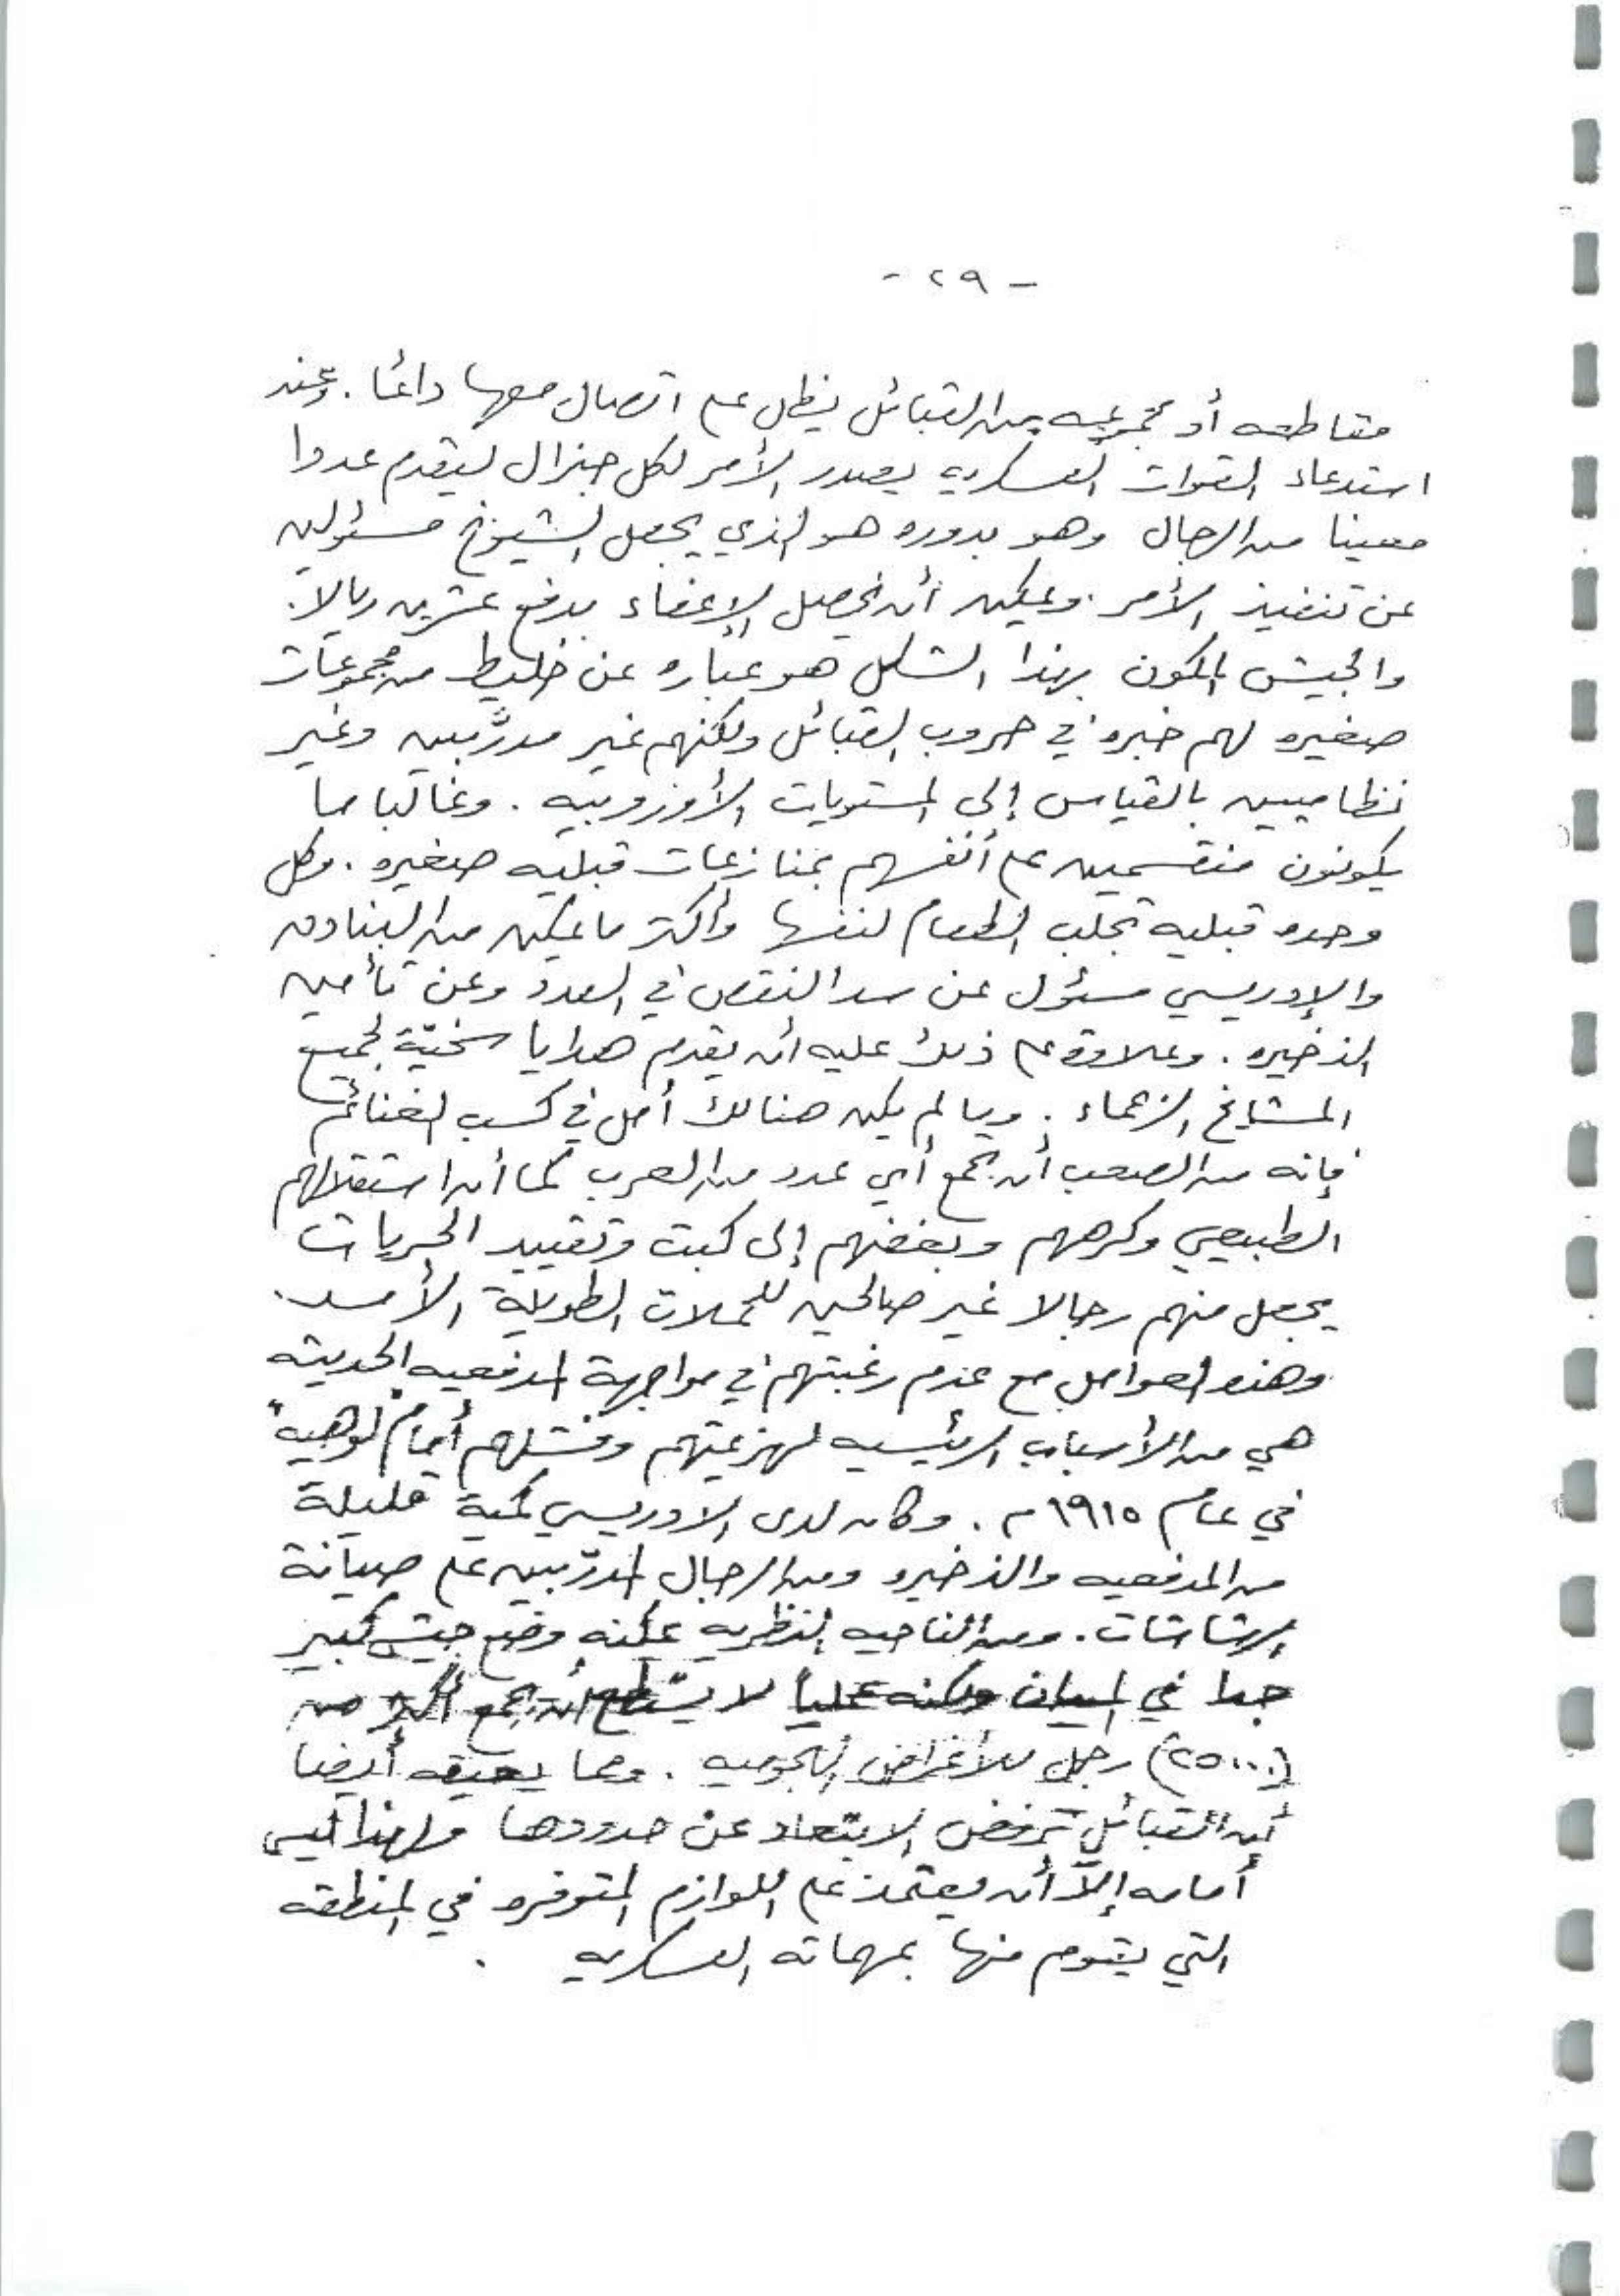 - ٢٩ -
مقاطعه أو مجموعه من القبائل يظل على اتصال معها دائما . وعند
استدعاء القوات العسكريه يصدر الأمر لكل جنرال ليقدم عددا
معينا من الرجال وهو بدوره هو الذي يجعل الشيوخ مسئولين
عن تنفيذ الأمر . ويمكن أن يحصل الإعفاء بدفع عشرين ريالا .
والجيش المكون بهذا الشكل هو عباره عن خليط من مجموعات
صغيره لهم خبره في حروب القبائل ولكنهم غير مدرَّبين وغير
نظاميين بالقياس إلى المستويات الأوروبيه . وغالبا ما
يكونون منقسمين على أنفسهم بمنازعات قبليه صغيره . وكل
وحده قبليه تجلب الطعام لنفسها وأكثر ما يمكن من البنادق
والإدريسي مسئول عن سد النقص في العدد وعن تأمين
الذخيره . وعلاوة على ذلك عليه أن يقدم هدايا سخيّة لجميع
المشايخ الزعماء . وما لم يكن هنالك أمل في كسب الغنائم
فإنه من الصعب أن يجمع أي عدد من العرب كما أن استقلالهم
الطبيعي وكرههم وبغضهم إلى كبت وتقييد الحريات
يجعل منهم رجالا غير صالحين للحملات الطويلة الأمد .
وهذه العوامل مع عدم رغبتهم في مواجهة المدفعيه الحديثه
هي من الأسباب الرئيسيه لهزيمتهم وفشلهم أمام "لوهيه"
في عام ١٩١٥م . وكان لدى الادريسي كمية قليلة
من المدفعيه والذخيره ومن الرجال المدرّبين على صيانة
الرشاشات . ومن الناحيه النظريه يمكنه وضع جيش كبير
جدا في الميدان ولكنه عمليا لا يستطيع أن يجمع أكثر من
(٢٥٠٠) رجل للأغراض الهجوميه . ومما يعيقه أيضا
أن القبائل ترفض الابتعاد عن حدودها ولهذا ليس
أمامه إلاّ أن يعتمد على اللوازم المتوفره في المنطقه
التي يقوم منها بمهماته العسكريه .